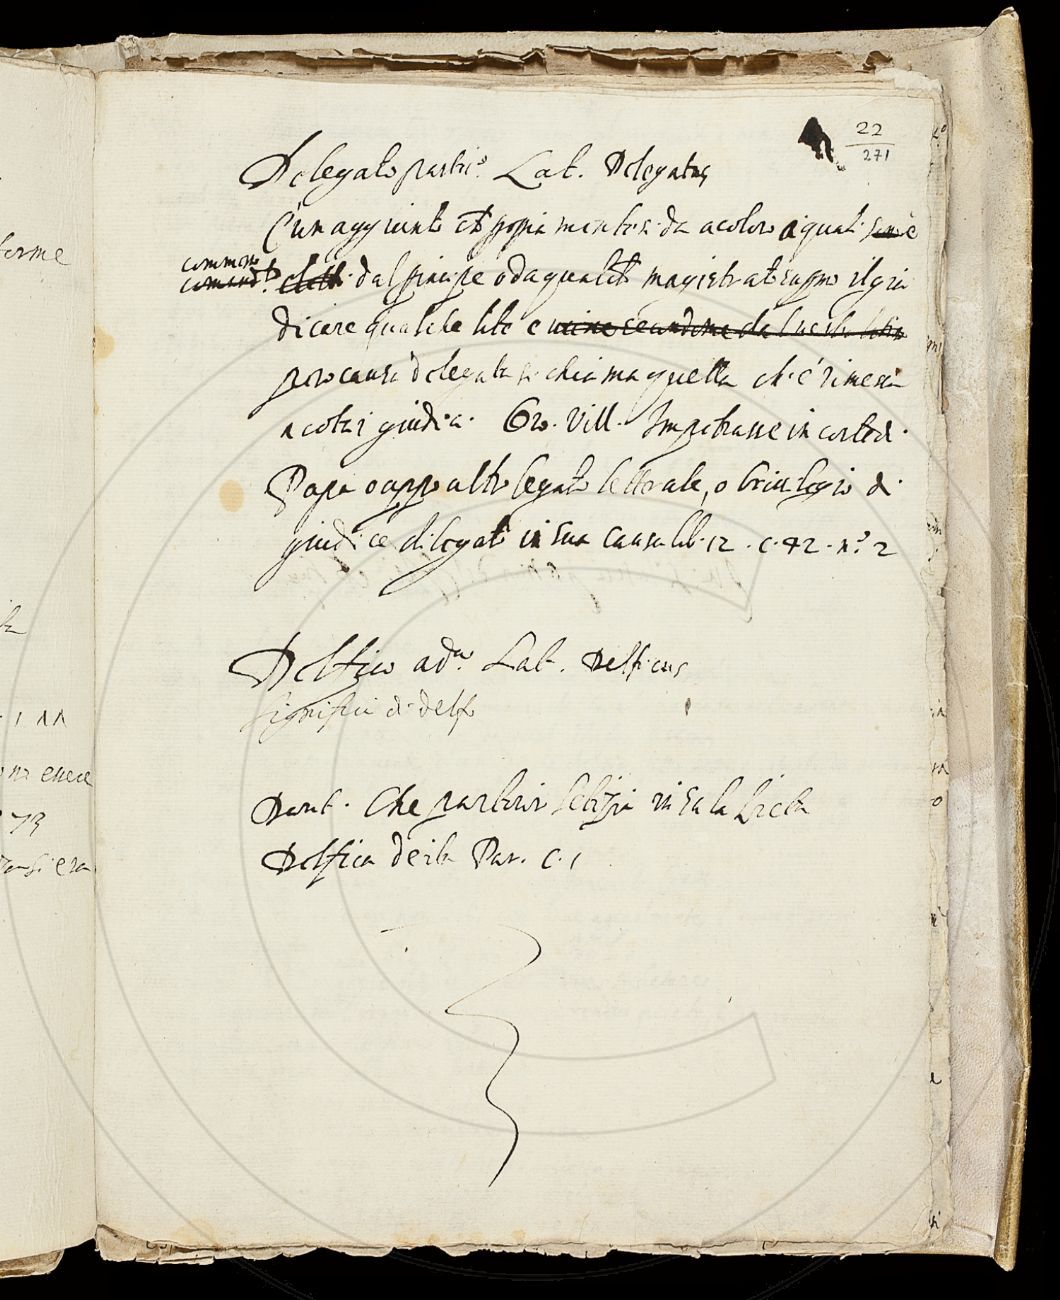 22
271
Delegato partic.o Lat. Delegatus
È un aggiunto ch propiamente si da a coloro a quali
commesso
comand.to dal principe o da qualche magistrato supmo il giu
dicare qualche lite e
pero causa delegata si chiama quella ch' è rimessa
a cotai giudici. Gio. Vill. Impetrasse in corte di
Papa o appo altro legato lettorale, o brivilegio di
giudice dilegato in sua causa lib. 12. c. 42. n.o 2
Delfico ad.o Lat. Delficus
Significa di delfo
Dant. Che partorir letizia in su la lieta
Delfica deità Par. c. 1
forme
73